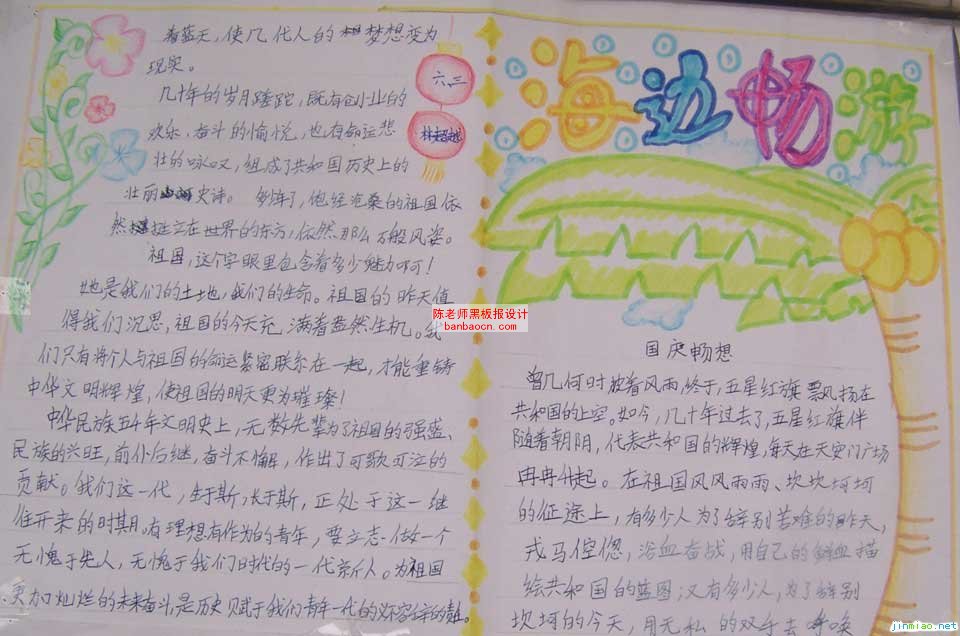 海边畅游
国庆畅想
曾几何时披着风雨,终于,五星红旗飘扬在
共和国的上空。如今,几十年过去了,五星红旗伴
随着朝阴,代表共和国的辉煌,每天在天安门广场
冉冉升起。在祖国风风雨雨、坎坎坷坷
的征途上,有多少人为了辞别苦难的昨天,
戎马倥偬,浴血奋战,用自己的鲜血描
绘共和国的蓝图;又有多少人,为了辞别
坎坷的今天,用无私的双手去呼唤
着蓝天,使几代人的梦想变为
现实。
几十年的岁月蹉跎,既有创业的
欢乐,奋斗的愉悦,也有命运悲
壮的咏叹,组成了共和国历史上的
壮丽史诗。多年了,饱经沧桑的祖国依
然挺立在世界的东方,依然那么万般风姿。
祖国,这个字眼里包含着多少魅力啊!
她是我们的土地,我们的生命。祖国的昨天值
得我们沉思,祖国的今天充满着盎然生机。我
们只有将个人与祖国的命运紧密联系在一起,才能重铸
中华文明辉煌,使祖国的明天更为璀璨!
中华民族五千年文明史上,无数先辈为了祖国的强盛、
民族的兴旺,前仆后继,奋斗不懈,作出了可歌可泣的
贡献。我们这一代,生于斯,长于斯,正处于这一继
往开来的时期。有理想有作为的青年,要立志做一个
无愧于先人,无愧于我们时代的一代新人。为祖国
更加灿烂的未来奋斗,是历史赋于我们青年一代的
六三
陈老师黑板报设计
banbaocn.com
jinmiao.net